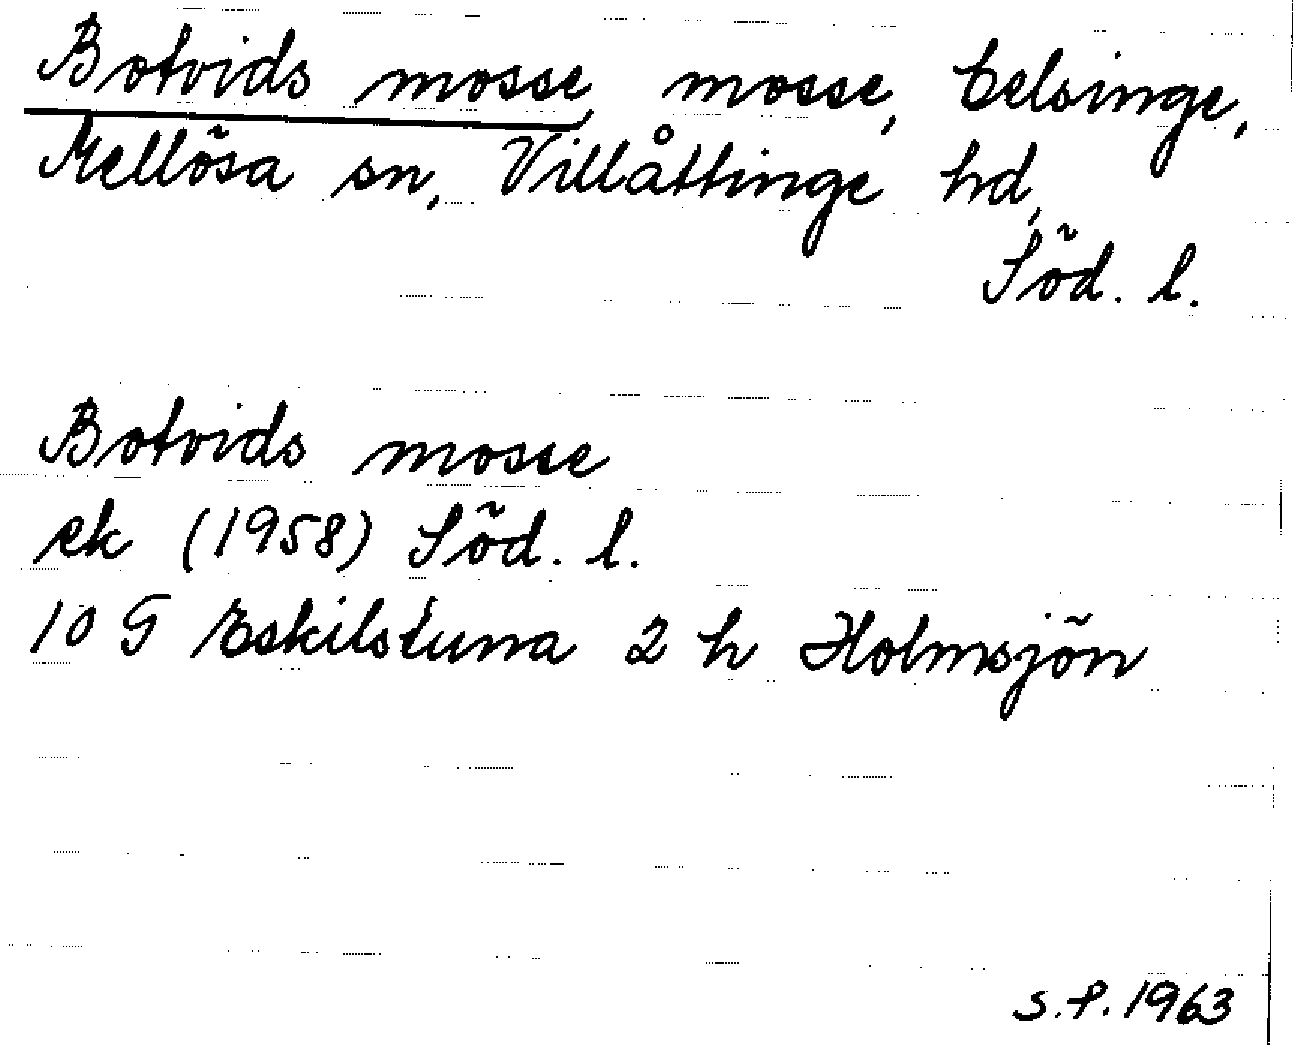 Botvids mosse, mosse, Celsinge,
Mellösa sn, Villåttinge hd,
Söd. l.
Botvids mosse
ek (1958) Söd. l.
10 G Eskilstuna 2 h Holmsjön
S.P. 1963